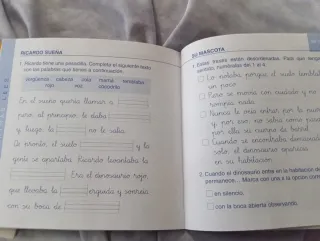 RICARDO SUEÑA
1. Ricardo tiene una pesadilla. Completa el siguiente texto
con las palabras que tienes a continuación.
cabeza vida mamá
rojo voz
En el sueño quería llamar a
pero al principio le daba
y luego, la no le salía.
De pronto, el suelo y la
gente se apartaba. Ricardo levantaba la
Era el dinosaurio rojo
que llevaba la erguida y sonreía
con su boca de
SU MASCOTA
1. Estas frases están desordenadas. Para que tengan
sentido, numéralas del 1 al 4.
Lo notaba porque el suelo temblaba
un poco.
Pero se movía con cuidado y no
rompía nada.
Nunca lo veía entrar por la puerta
y, por eso no sabía cómo pasaba
por ella su cuerpo de
Cuando se encontraba demasiado
solo, el dinosaurio aparecía
en su habitación.
2. Cuando el dinosaurio entra en la habitación de
permanece... Marca con una x la opción
en silencio.
con la boca abierta observando.